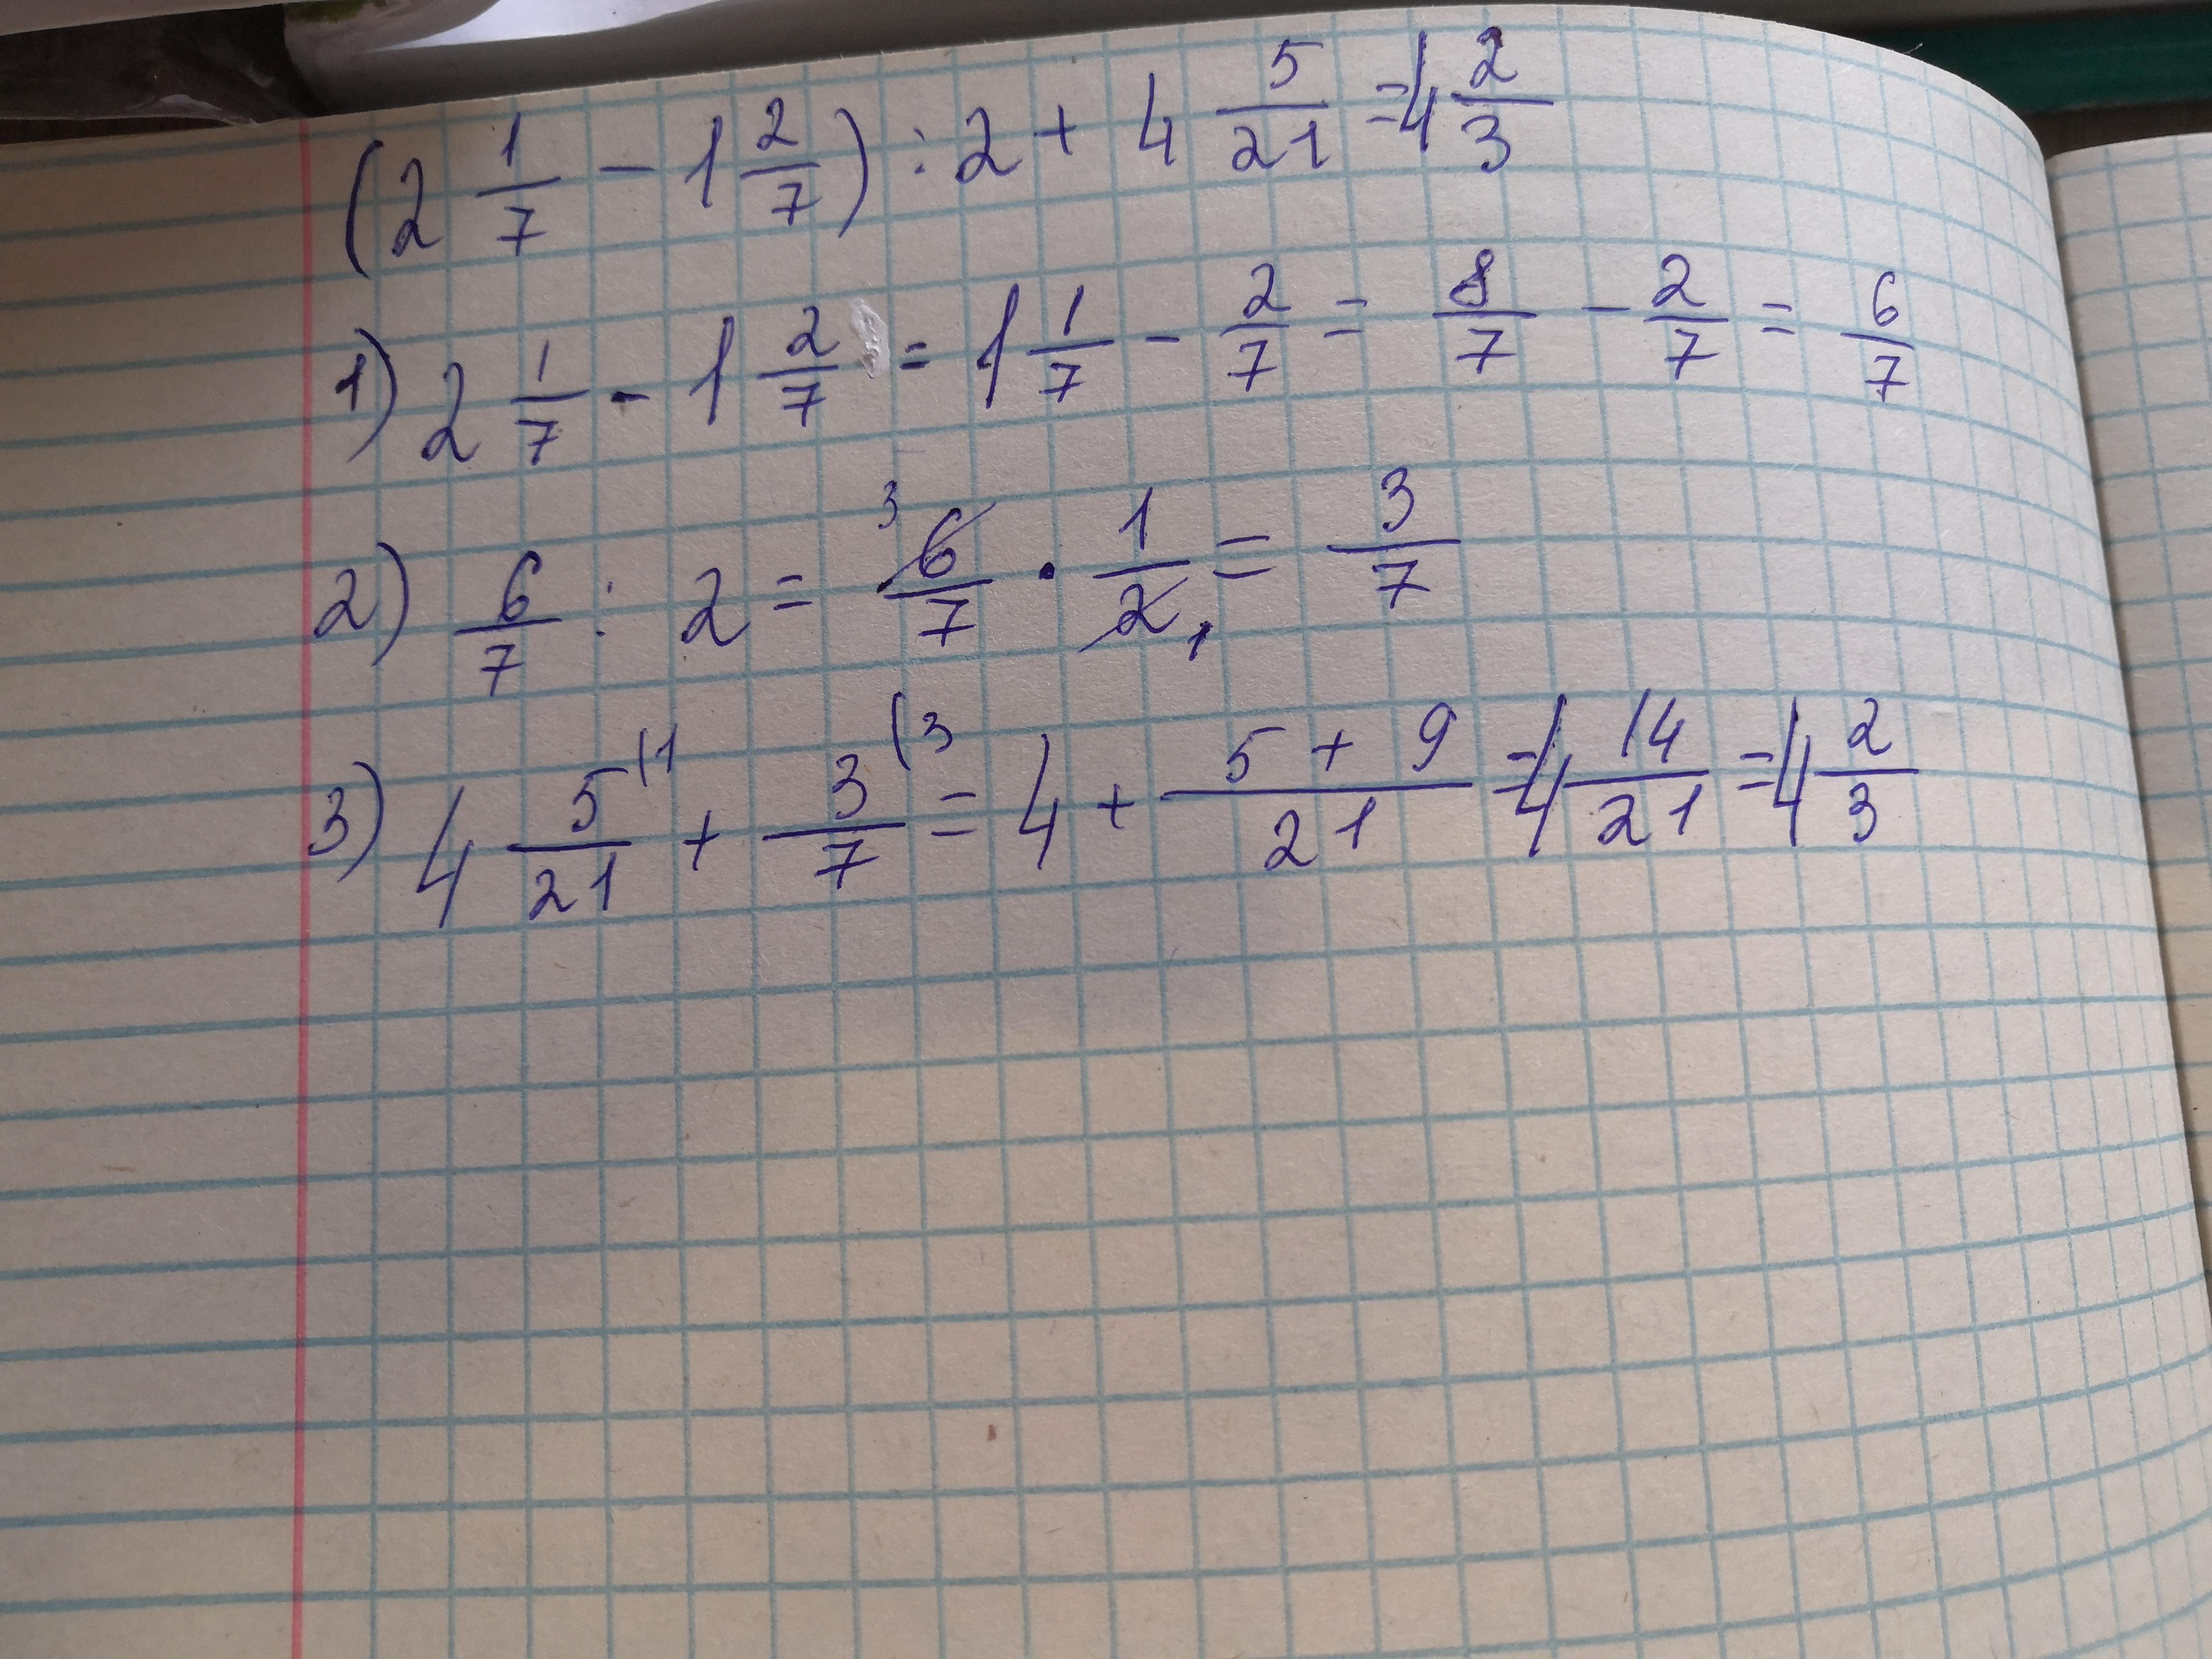 (2 1/7 - 1 2/7) : 2 + 4 5/21 = 4 2/3
1) 2 1/7 - 1 2/7 = 1 1/7 - 2/7 = 8/7 - 2/7 = 6/7
2) 6/7 : 2 = ³6/7 · 1/2₁ = 3/7
3) 4 5/21 (1 + 3/7 (3 = 4 + (5 + 9)/21 = 4 14/21 = 4 2/3